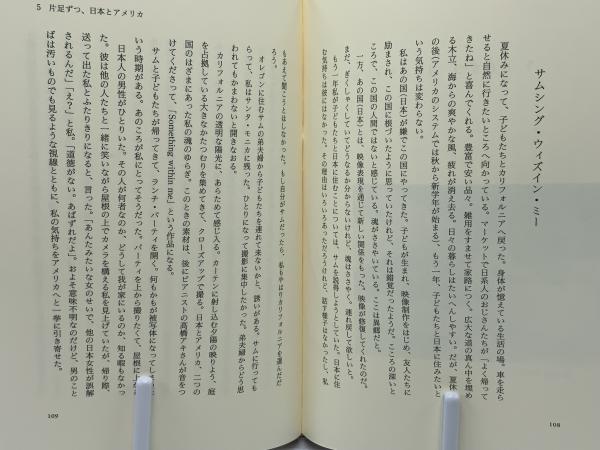 サムシング・ウィズイン・ミー
夏休みになって、子どもたちとカリフォルニアへ戻った。身体が憶えている生活の場。車を走ら
せると自然に行きたいところへ向かっている。マーケットで日系人のおじさんたちが「よく帰って
きたね」と喜んでくれる。豊富で安い品々。雑用をすませて家路につく。広大な道の真ん中を埋め
る木立、海からの爽やかな風、疲れが消える。日々の暮らしはたいへんしやすい。だが、夏休
の後(アメリカのシステムでは秋から新学年が始まる)、もう一年、子どもたちと日本に住みたいと
いう気持ちは変わらない。
私はあの国(日本)が嫌でこの国にやってきた。子どもが生まれ、映像制作をはじめ、友人たちに
励まされ、この国に根づいたように思っていたけれど、それは錯覚だったようだ。こころの深いと
ころで、この国の人間ではないと感じている。魂がささやいている。ここは異郷だと。
一方、あの国(日本)とは、映像表現を通じて新しい関係をもった。映像が修復してくれたのだ。
まだ、ぎくしゃくしていてどうなるか分からないけれど、魂はささやく。連れ戻して欲しいと。
もう一年私が子どもたちと日本に住むことについては、サムを説得しようとしていた。日本に住
む気持ちは彼にはなかった。その理由はいろいろあっただろうけれど、話す様子はなかったし、私
もあえて聞こうとはしなかった。もし自分がサムだったら、私もやはりカリフォルニアを選んだだ
ろう。
オレゴンに住むサムの弟夫婦から子どもたちを連れて来ないかと、誘いがある。サムに行っても
らって、私はサンタ・モニカに残った。ひとりになって撮影に集中したかった。弟夫婦からどう思
われてもかまわないと開きなおる。
カリフォルニアの透明な陽光に、あらためて感じ入る。カーテンに射し込む夕陽の映りよう、庭
を占拠している大きなかたつむりを集めてきて、クローズアップで撮る。日本とアメリカ、二つの
国のはざまにあった私の魂のゆらぎ。このときの素材は、後にピアニストの高橋アキさんが音をつ
けてくださって、『Something within me』という作品になる。
サムと子どもたちが帰ってきて、ランチ・パーティを開く。何もかもが被写体になってし
いう時期がある。あのころが私にとってそうだった。パーティを上から撮りたくて、屋根に上
日本人の男性がひとりいた。その人が何者なのか、どうして我が家にいるのか、知る暇もなかっ
た。彼は他の人たちと一緒に笑いながら屋根の上でカメラを構える私を見上げていたが、帰り際、
送って出た私とふたりきりになると、言った。「あんたみたいな女のせいで、他の日本女性が誤解
されるんだ」「え?」と私。「道徳がない。あばずれだよ」。およそ意味不明なのだけど、男のこと
ばは汚いものでも見るような視線とともに、私の気持ちをアメリカへと一挙に引き寄せた。
108
5 片足ずつ、日本とアメリカ
109